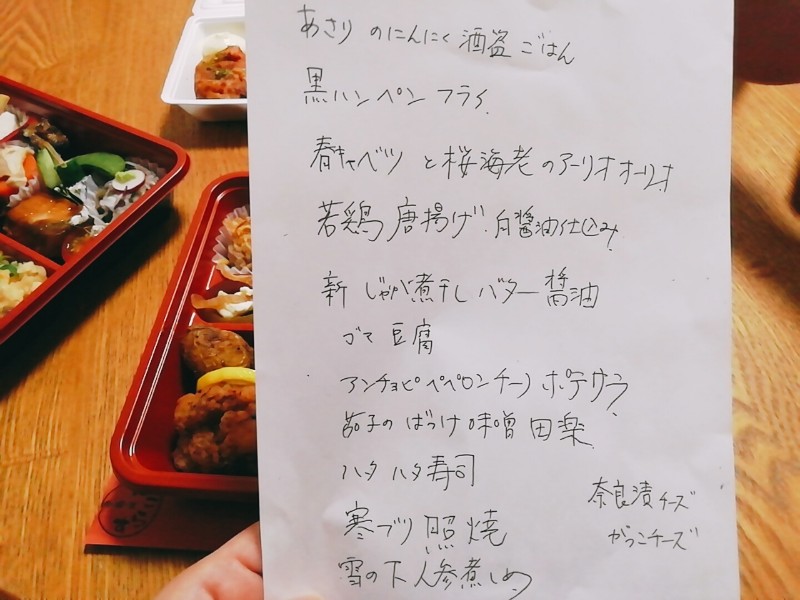 あさりのにんにく酒盗ごはん
黒ハンペンフライ
春キャベツと桜海老のアーリオオーリオ
若鶏唐揚げ 白醤油仕込み
新じゃが煮干しバター醤油
ゴマ豆腐
アンチョビペペロンチーノポテサラ
茄子のばっけ味噌田楽
ハタハタ寿司
寒ブリ照焼
雪の下人参煮しめ
奈良漬チーズ
がっこチーズ